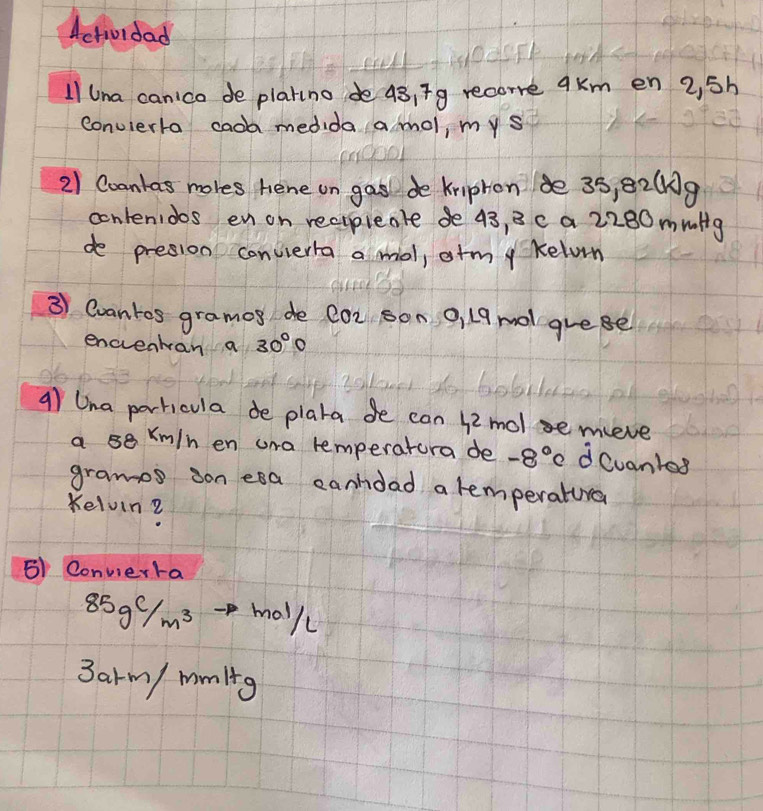 Actividad
1) Una canica de platino de 43,7g recorre 4km en 2,5h
convierta cada medida a mol, m y s
2) Cuantas moles tiene un gas de kripton de 35,82(k)g
contenidos en un recipiente de 43,3 c a 2280 mmHg
de presion convierta a mol, atm y Kelvin
3) Cuantos gramos de CO2 son 0,19 mol que se
encuentran a 30°c
4) Una particula de plata de con 1,2 mol se mueve
a 58 km/h en una temperatura de -8°c ¿Cuantos
gramos son esa cantidad a temperatura
Kelvin?
5) Convierta
85g C/m³ → mol/L
3atm/mmHg